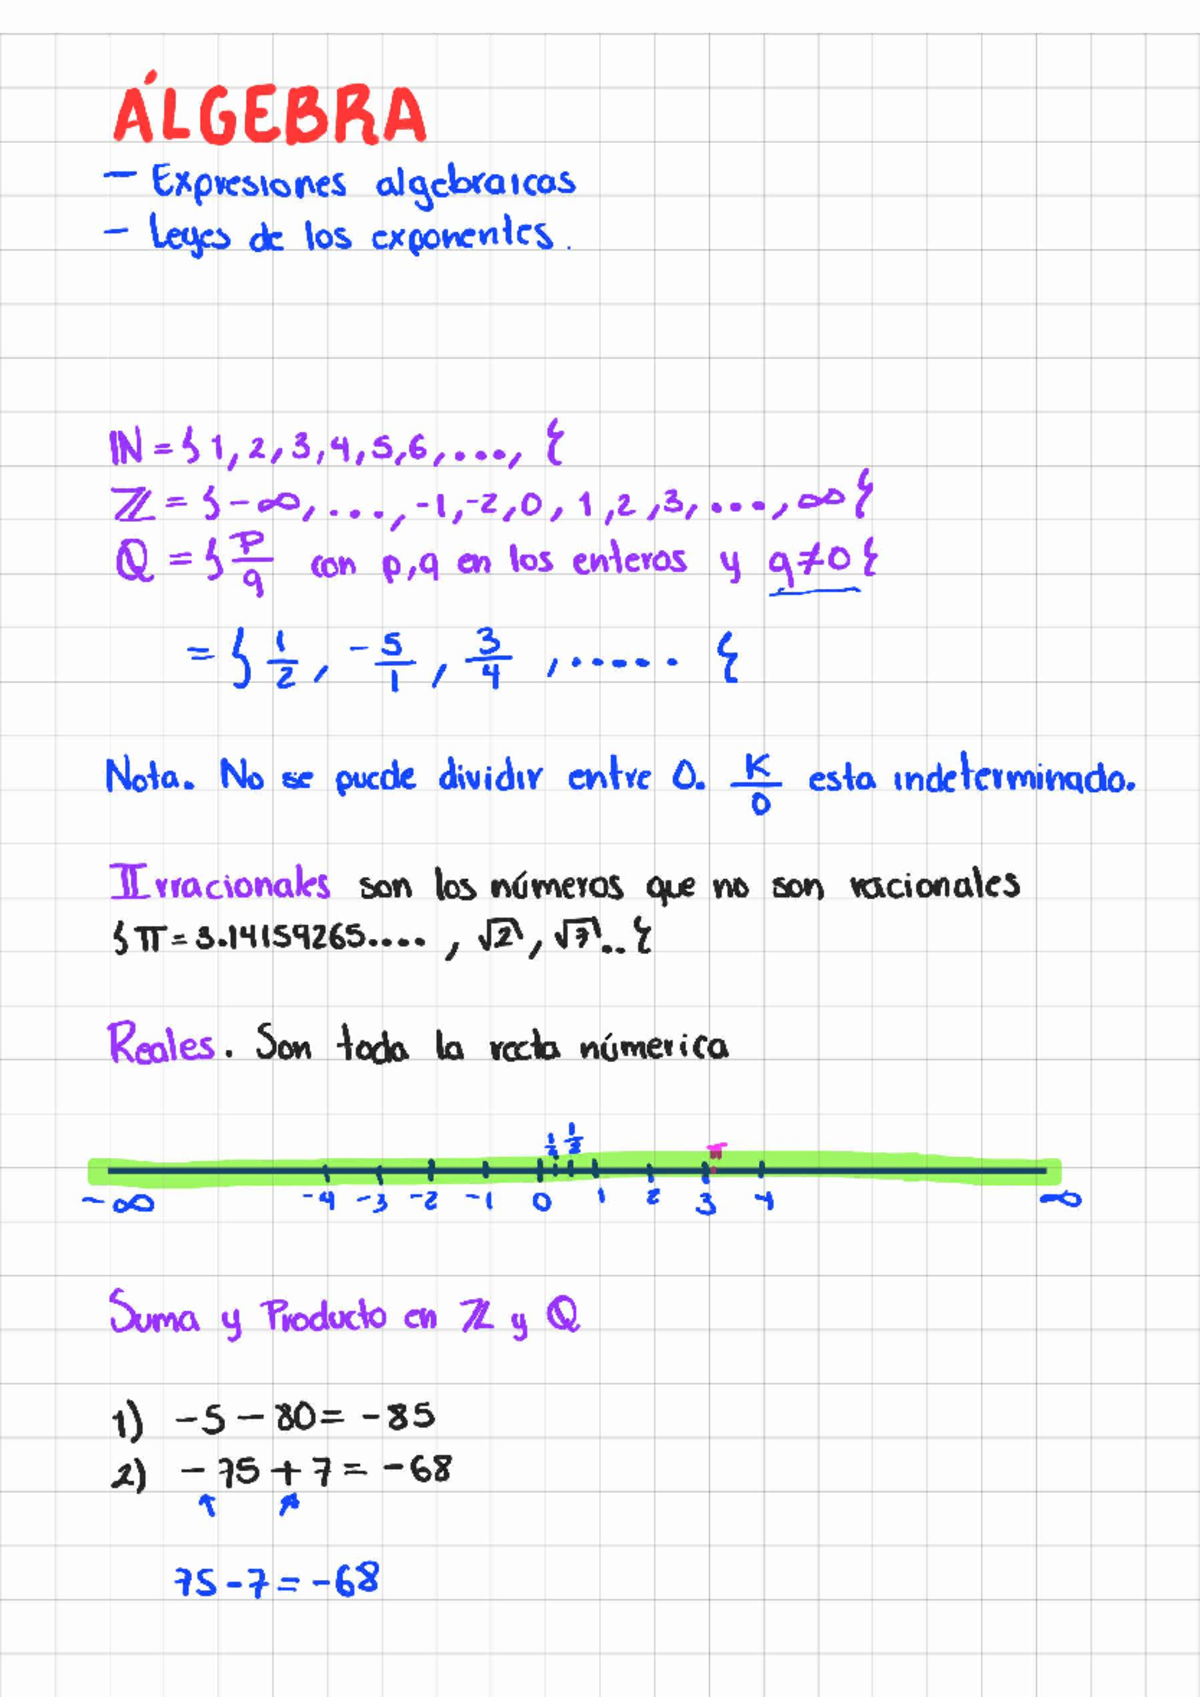 ÁLGEBRA
- Expresiones algebraicas
- Leyes de los exponentes.
IN = { 1, 2, 3, 4, 5, 6, ..., {
ℤ = { -∞, ..., -1, -2, 0, 1, 2, 3, ..., ∞ {
Q = { p/q con p,q en los enteros y q≠0 {
= { 1/2, -5/1, 3/4, ...... {
Nota. No se puede dividir entre 0. K/0 esta indeterminado.
IIrracionales son los números que no son racionales
{ π = 3.14159265...., √2, √7.. {
Reales. Son toda la recta númerica
1/2 π
-∞ -4 -3 -2 -1 0 1 2 3 4 ∞
Suma y Producto en ℤ y Q
1) -5 - 80 = -85
2) - 75 + 7 = -68
75 - 7 = -68